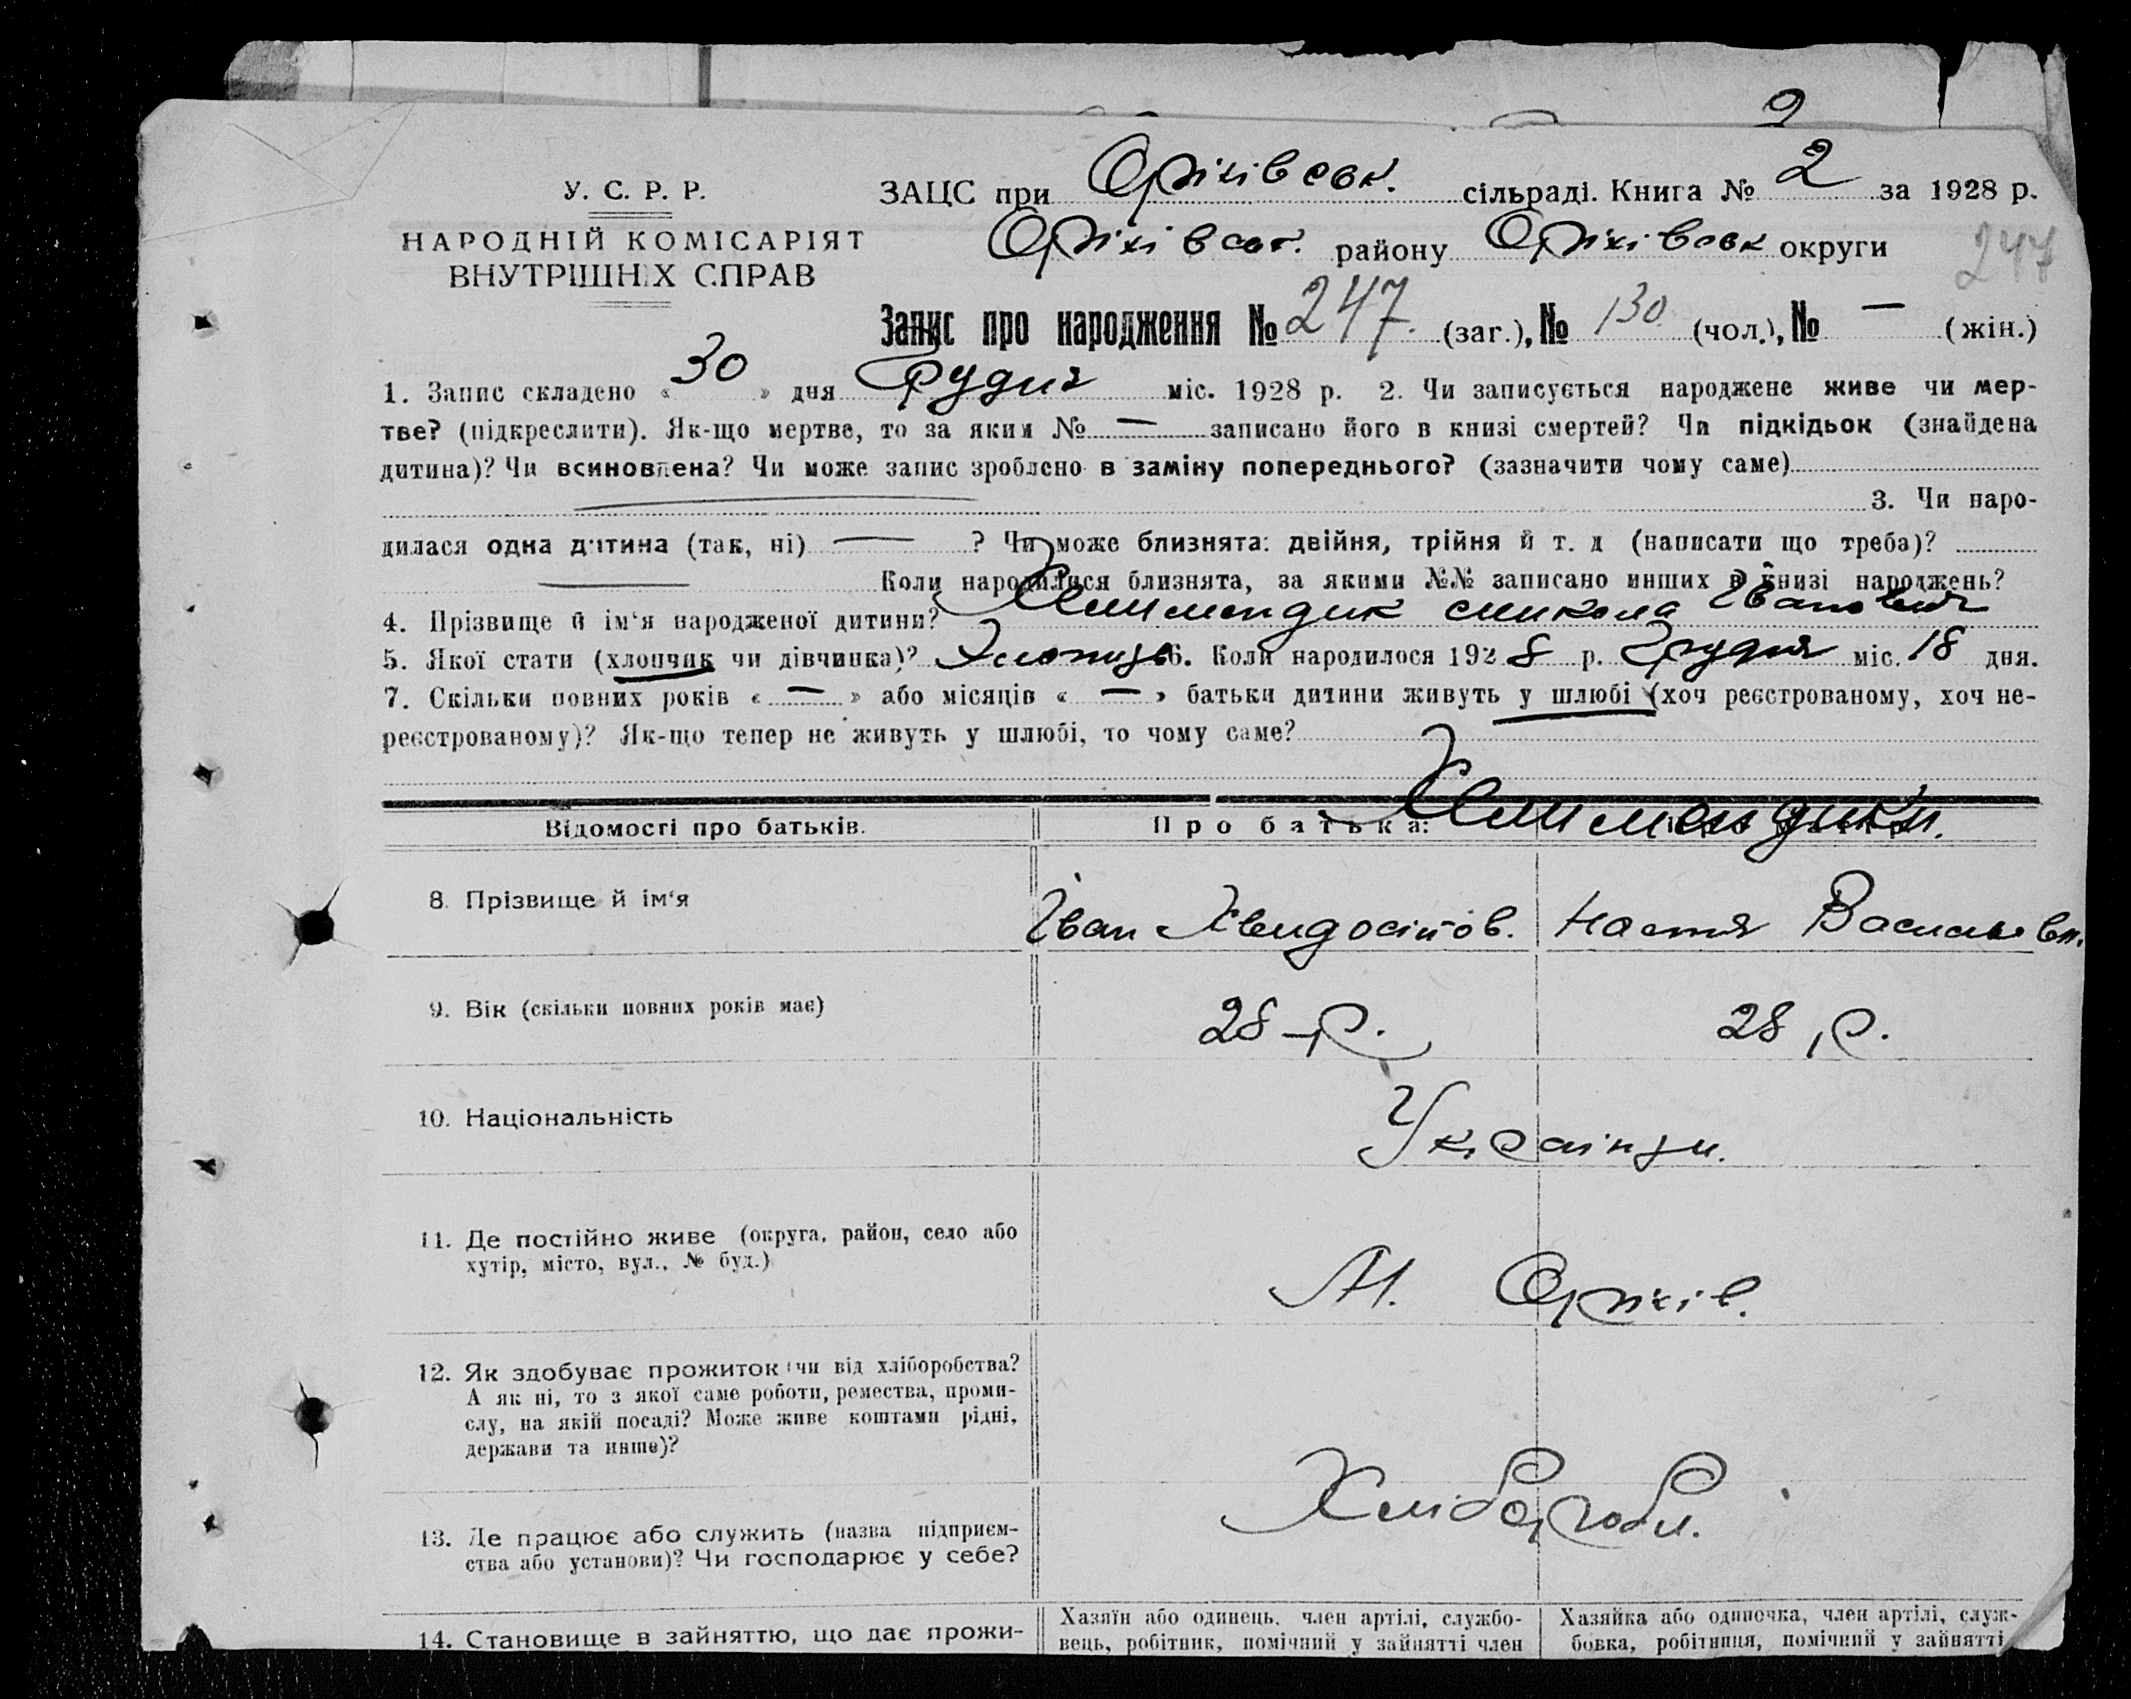 У. С. Р. Р.
НАРОДНІЙ КОМІСАРІЯТ
ВНУТРІШНІХ СПРАВ
2
ЗАЦС при Оріхівськ. сільраді. Книга № 2 за 1928 р.
Оріхівськ. району Оріхівськ округи
247
Запис про народження № 247. (заг.), № 130 (чол.), № — (жін.)
1. Запис складено « 30 » дня Грудня міс. 1928 р. 2. Чи записується народжене живе чи мер-
тве? (підкреслити). Як-що мертве, то за яким № — записано його в книзі смертей? Чи підкідьок (знайдена
дитина)? Чи всиновлена? Чи може запис зроблено в заміну попереднього? (зазначити чому саме)
3. Чи наро-
дилася одна дитина (так, ні) — ? Чи може близнята: двійня, трійня й т. д (написати що треба)?
— Коли народилися близнята, за якими №№ записано инших в книзі народжень?
4. Прізвище й ім'я народженої дитини? Хлимендик Микола Іванович
5. Якої стати (хлопчик чи дівчинка)? Хлопець 6. Коли народилося 1928 р. Грудня міс. 18 дня.
7. Скільки повних років « — » або місяців « — » батьки дитини живуть у шлюбі (хоч реєстрованому, хоч не-
реєстрованому)? Як-що тепер не живуть у шлюбі, то чому саме?
Відомості про батьків. Про батька: Хлимендики.
8. Прізвище й ім'я Іван Хведосіїов. Настя Васильевн.
9. Вік (скільки повних років має) 28 р. 28 р.
10. Національність Українци.
11. Де постійно живе (округа, район, село або
хутір, місто, вул., № буд.) М. Оріхів.
12. Як здобуває прожиток (чи від хліборобства?
А як ні, то з якої саме роботи, ремества, проми-
слу, на якій посаді? Може живе коштами рідні,
держави та инше)?
Хлібороби.
13. Де працює або служить (назва підприєм-
ства або установи)? Чи господарює у себе?
14. Становище в зайняттю, що дає прожи- Хазяїн або одинець, член артілі, службо- Хазяйка або одиночка, член артілі, служ-
вець, робітник, помічний у зайнятті член бовка, робітниця, помічний у зайнятті